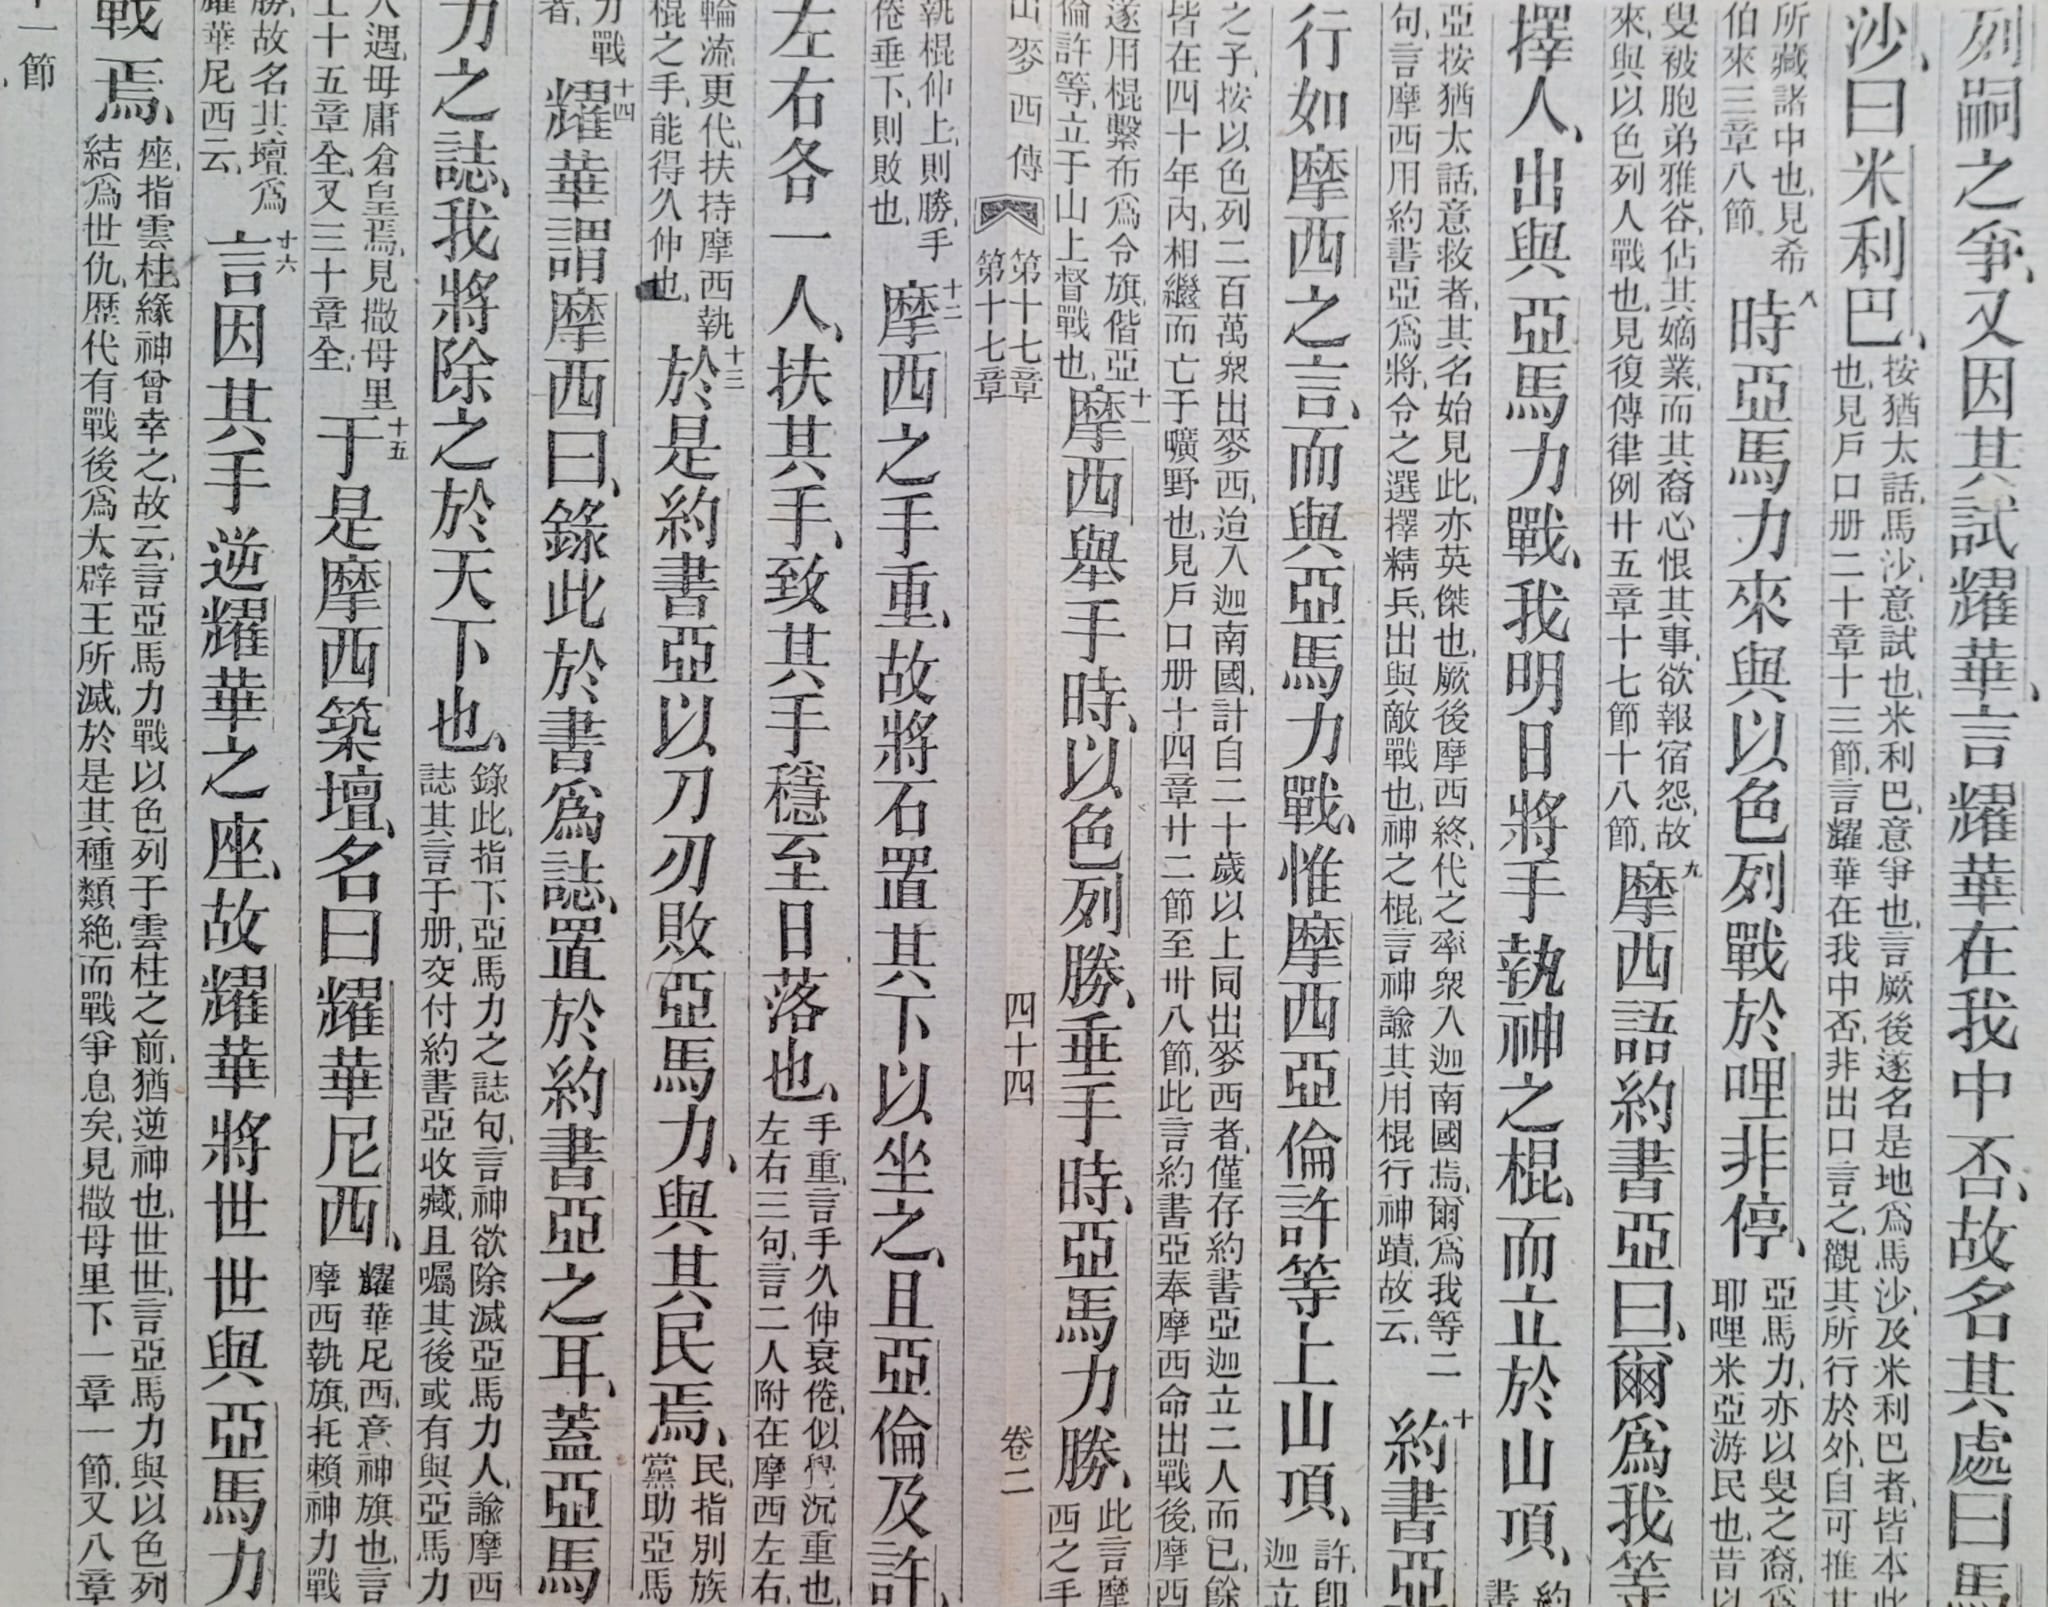 列嗣之爭、又因其試耀華、言耀華在我中否、故名其處曰馬
沙、曰米利巴、
按猶太話、馬沙、意試也、米利巴、意爭也、言厥後遂名是地爲馬沙、及米利巴者、皆本此
也、見戶口册二十章十三節、言耀華在我中否、非出口言之、觀其所行於外、自可推其
所藏諸中也、見希
伯來三章八節
八
時亞馬力來與以色列戰於哩非停、
亞馬力、亦以叟之裔、爲
耶哩米亞游民也、昔以
叟被胞弟雅谷、佔其嫡業、而其裔心恨其事、欲報宿怨、故
來、與以色列人戰也、見復傳律例廿五章十七節十八節、
九
摩西語約書亞曰、爾爲我等
擇人、出與亞馬力戰、我明日將手執神之棍、而立於山頂、
約書
亞按猶太話、意救者、其名始見此、亦英傑也、厥後摩西終、代之率衆入迦南國焉、爾爲我等二
句、言摩西用約書亞爲將、令之選擇精兵、出與敵戰也、神之棍、言神諭其用棍行神蹟、故云
十
約書亞
行如摩西之言、而與亞馬力戰、惟摩西亞倫許等上山頂、
許、即
迦立
之子、按以色列二百萬衆出麥西、迨入迦南國、計自二十歲以上同出麥西者、僅存約書亞迦立二人而已、餘
皆在四十年內、相繼而亡于曠野也、見戶口册十四章廿二節至卅八節、此言約書亞奉摩西命出戰後、摩西
遂用棍繫布爲令旗、偕亞
倫許等、立于山上督戰也、
十一
摩西舉手時、以色列勝、垂手時、亞馬力勝、
此言摩
西之手
出麥西傳
第十七章
第十七章
四十四
卷二
執棍仰上、則勝、手
倦垂下、則敗也、
十二
摩西之手重、故將石置其下以坐之、且亞倫及許、
左右各一人、扶其手、致其手穩至日落也、
手重、言手久伸衰倦、似覺沉重也、
左右三句、言二人附在摩西左右、
輪流更代、扶持摩西執
棍之手、能得久伸也、
十三
於是約書亞以刀刃敗亞馬力、與其民焉、
民、指別族
黨助亞馬
力戰
者、
十四
耀華謂摩西曰、錄此於書爲誌、置於約書亞之耳、蓋亞馬
力之誌、我將除之於天下也、
錄此、指下亞馬力之誌句、言神欲除滅亞馬力人、諭摩西
誌其言于册、交付約書亞收藏、且囑其後或有與亞馬力
人遇、毋庸倉皇焉、見撒母里
上十五章全、又三十章全、
十五
于是摩西築壇、名曰耀華尼西、
耀華尼西、意神旗也、言
摩西執旗、托賴神力戰
勝、故名其壇爲
耀華尼西云、
十六
言因其手逆耀華之座、故耀華將世世與亞馬力
戰焉、
座、指雲柱、緣神曾幸之、故云、言亞馬力戰以色列于雲柱之前、猶逆神也、世世、言亞馬力與以色列
結爲世仇、歴代有戰後爲大辟王所滅、於是其種類絶、而戰爭息矣、見撒母里下一章一節、又八章
十一節